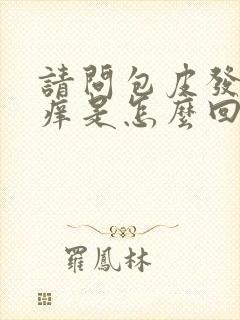 請問包皮發
痒是怎麼回
羅鳳林